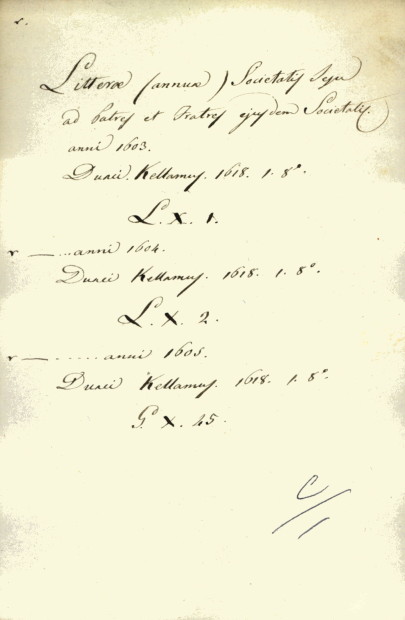 Litterae (annuae) Societatis Jesu
ad Patres et Fratres ejusdem Societatis.
anni 1603.
Duaci. Kellamus. 1618. 1. 8°.
L. X. 1.
r — ...anni 1604.
Duaci Kellamus. 1618. 1. 8°.
L. X. 2.
r — ......anni 1605.
Duaci Kellamus. 1618. 1. 8°.
G. X. 45.
C/1